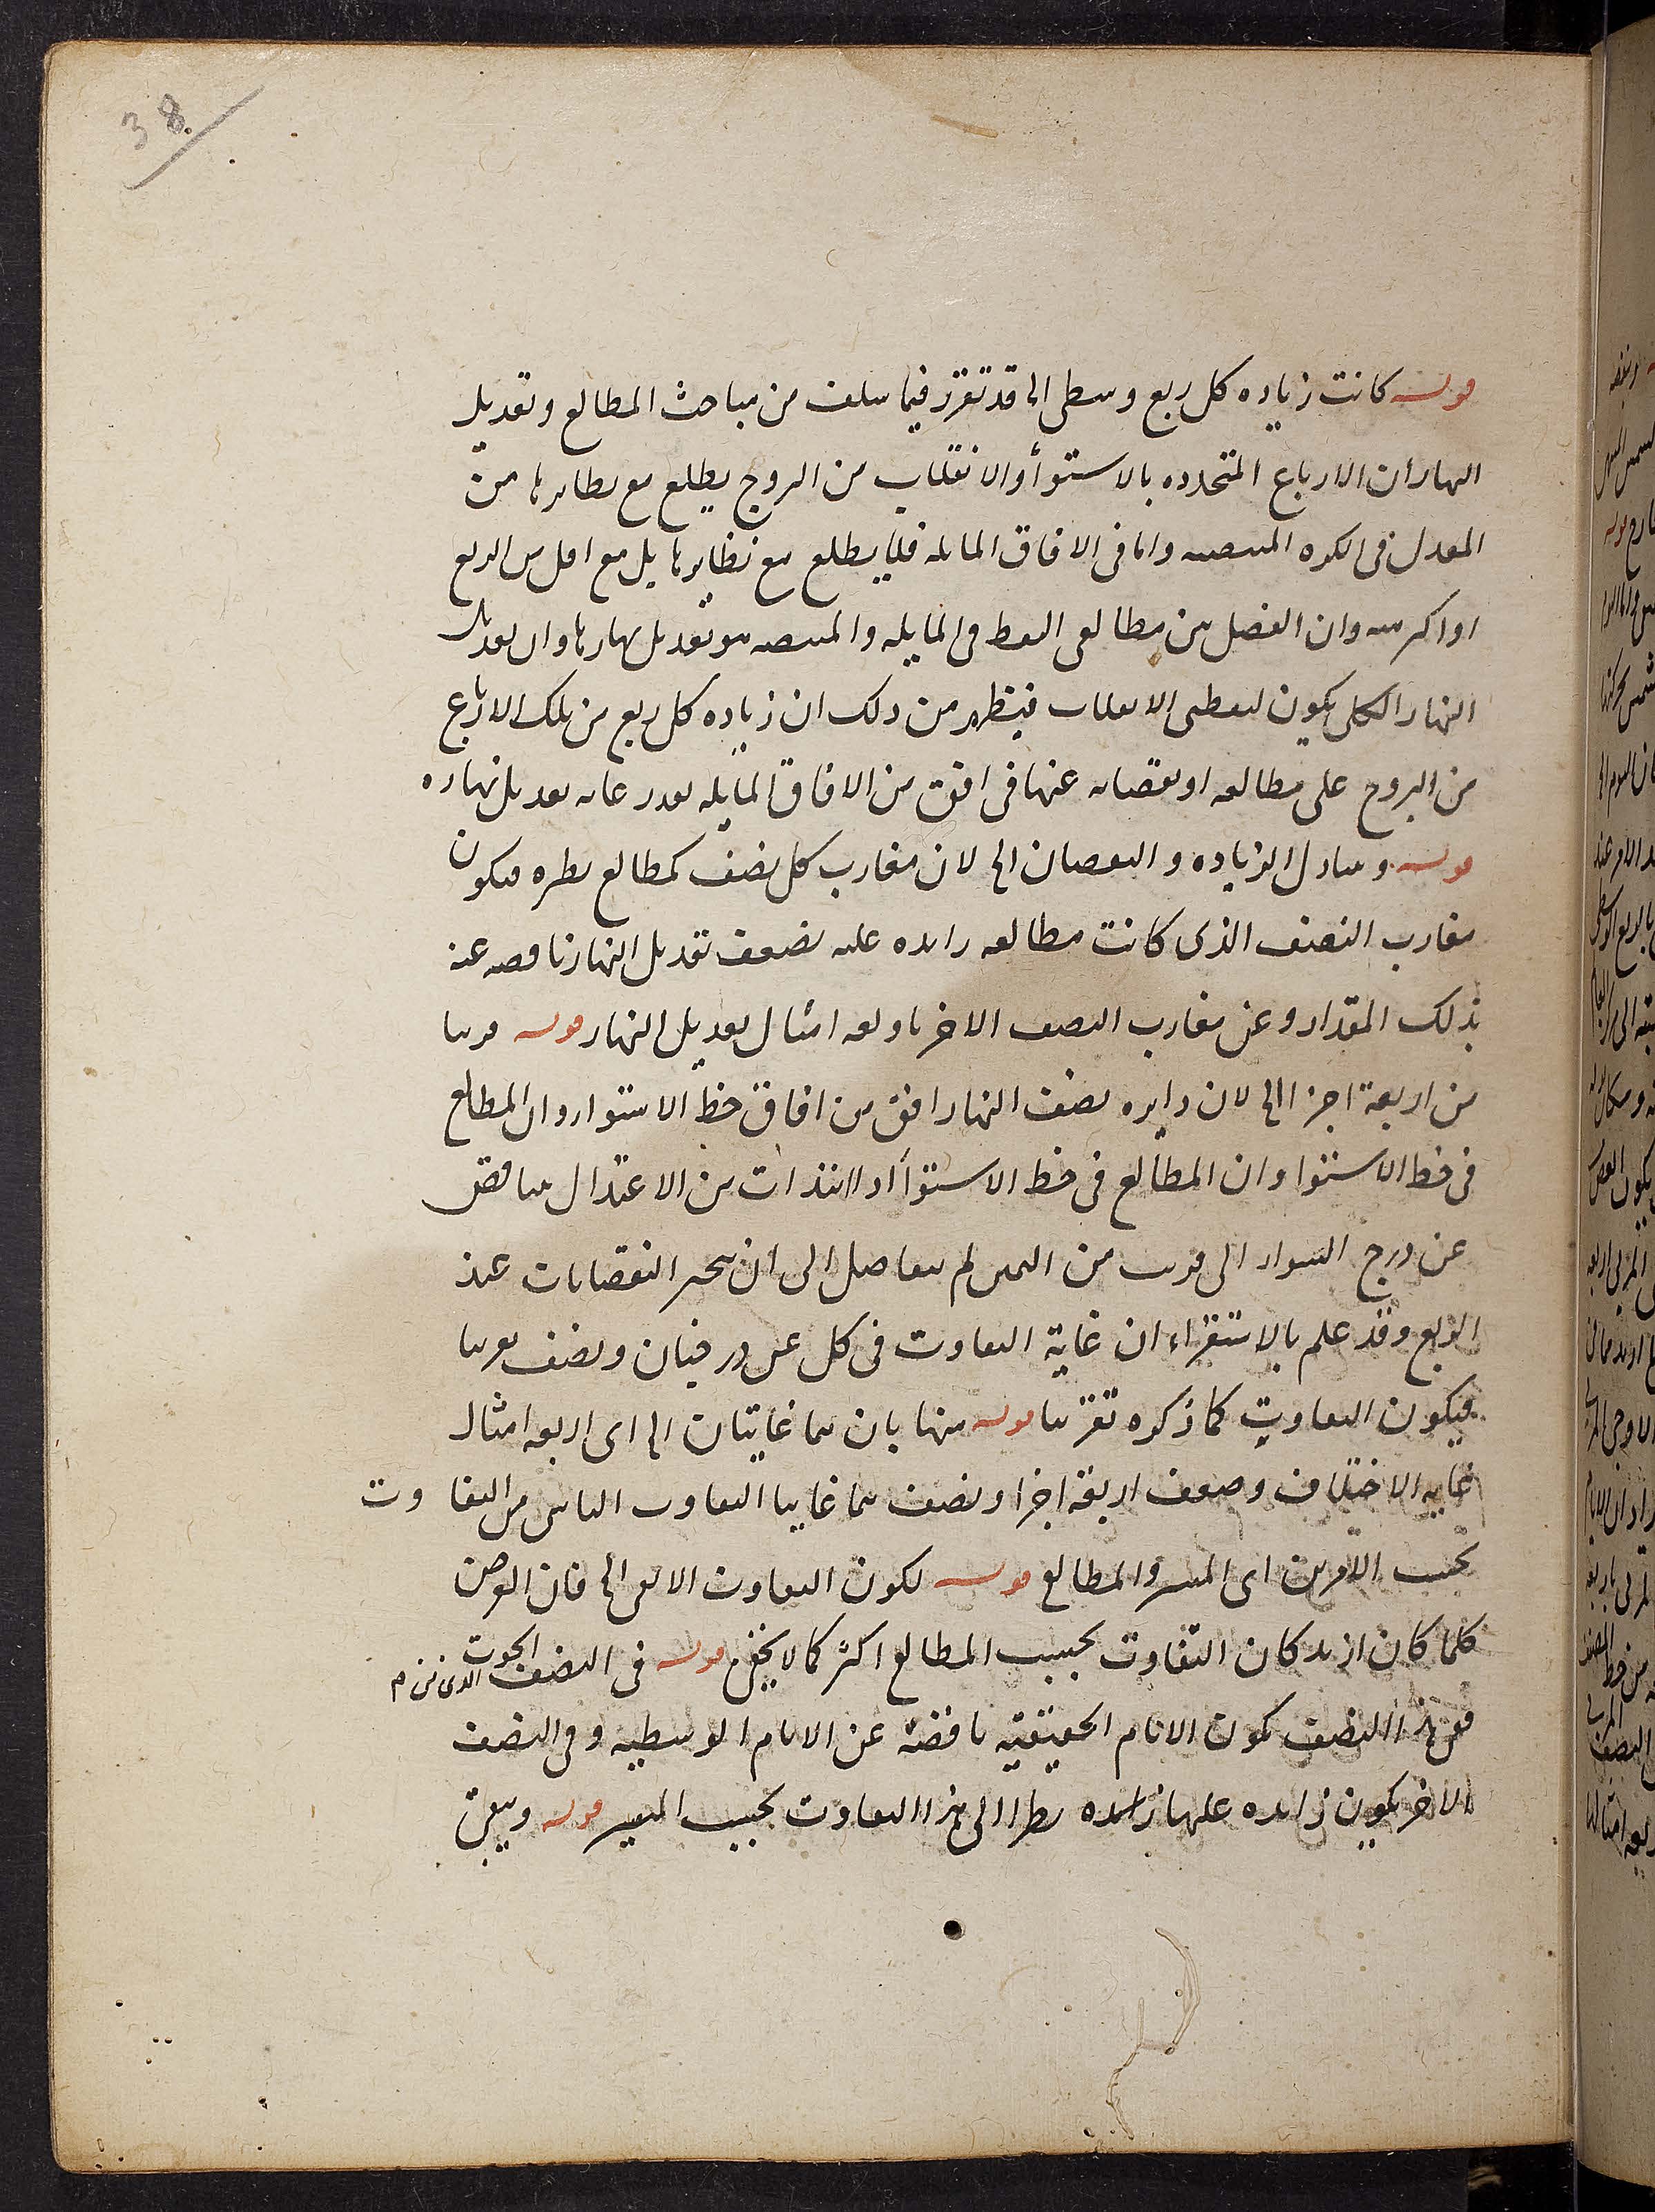 38
قوله كانت زياده كل ربع وسطى الخ قد تقرر فيما سلف من مباحث المطالع وتعديل
النهار أن الارباع المتحدده بالاستوأ والانقلاب من البروج يطلع مع نظايرها من
المعدل فى الكره المنتصبه واما فى الافاق المايله فلا يطلع مع نظايرها بل مع اقل من الربع
او اكثر منه وان الفضل بين مطالعى النقط فى المايله والمنتصبه هو تعديل نهارها وان تعديل
النهار الكلى يكون لنقطتى الانقلاب فيظهر من ذلك ان زياده كل ربع من تلك الارباع
من البروج على مطالعه او نقصانه عنها فى افق من الافاق المايله بقدر غايه تعديل نهاره
قوله وتبادل الزياده والنقصان الخ لان مغارب كل نصف كمطالع نظيره فيكون
مغارب النصف الذى كانت مطالعه زايده عليه بضعف تعديل النهار ناقصه عنه
بذلك المقدار وعن مغارب النصف الاخر باربعه امثال تعديل النهار قوله قريبا
من اربعة اجزا الخ لان دايره نصف النهار افق من افاق خط الاستوا وان المطالع
فى خط الاستوا وان المطالع فى خط الاستوأ اذا ابتدات من الاعتدال يتناقص
عن درج السواء الى قريب من الثمن ثم يتفاضل الى ان ينجبر النقصانات عند
الربع وقد علم بالاستقراء ان غاية التفاوت فى كل ثمن درجتان ونصف تقريبا
فيكون التفاوت كما ذكره تقريبا قوله منها بان هما غايتان الخ اى اربعه امثال
غايه الاختلاف وضعف اربعة اجزا ونصف هما غايتا التفاوت الناشى من التفاوت
بحسب الامرين اى المسير والمطالع قوله لكون التفاوت الافقى الخ فان العرض
كلما كان ازيد كان التفاوت بحسب المطالع اكثر كما لا يخفى قوله فى النصف الذى
ففى هذا النصف يكون الايام الحقيقيه ناقصة عن الايام الوسطيه وفى النصف
الاخر يكون زايده عليها زايده نظرا الى هذا التفاوت بحسب المسير قوله ويبقى